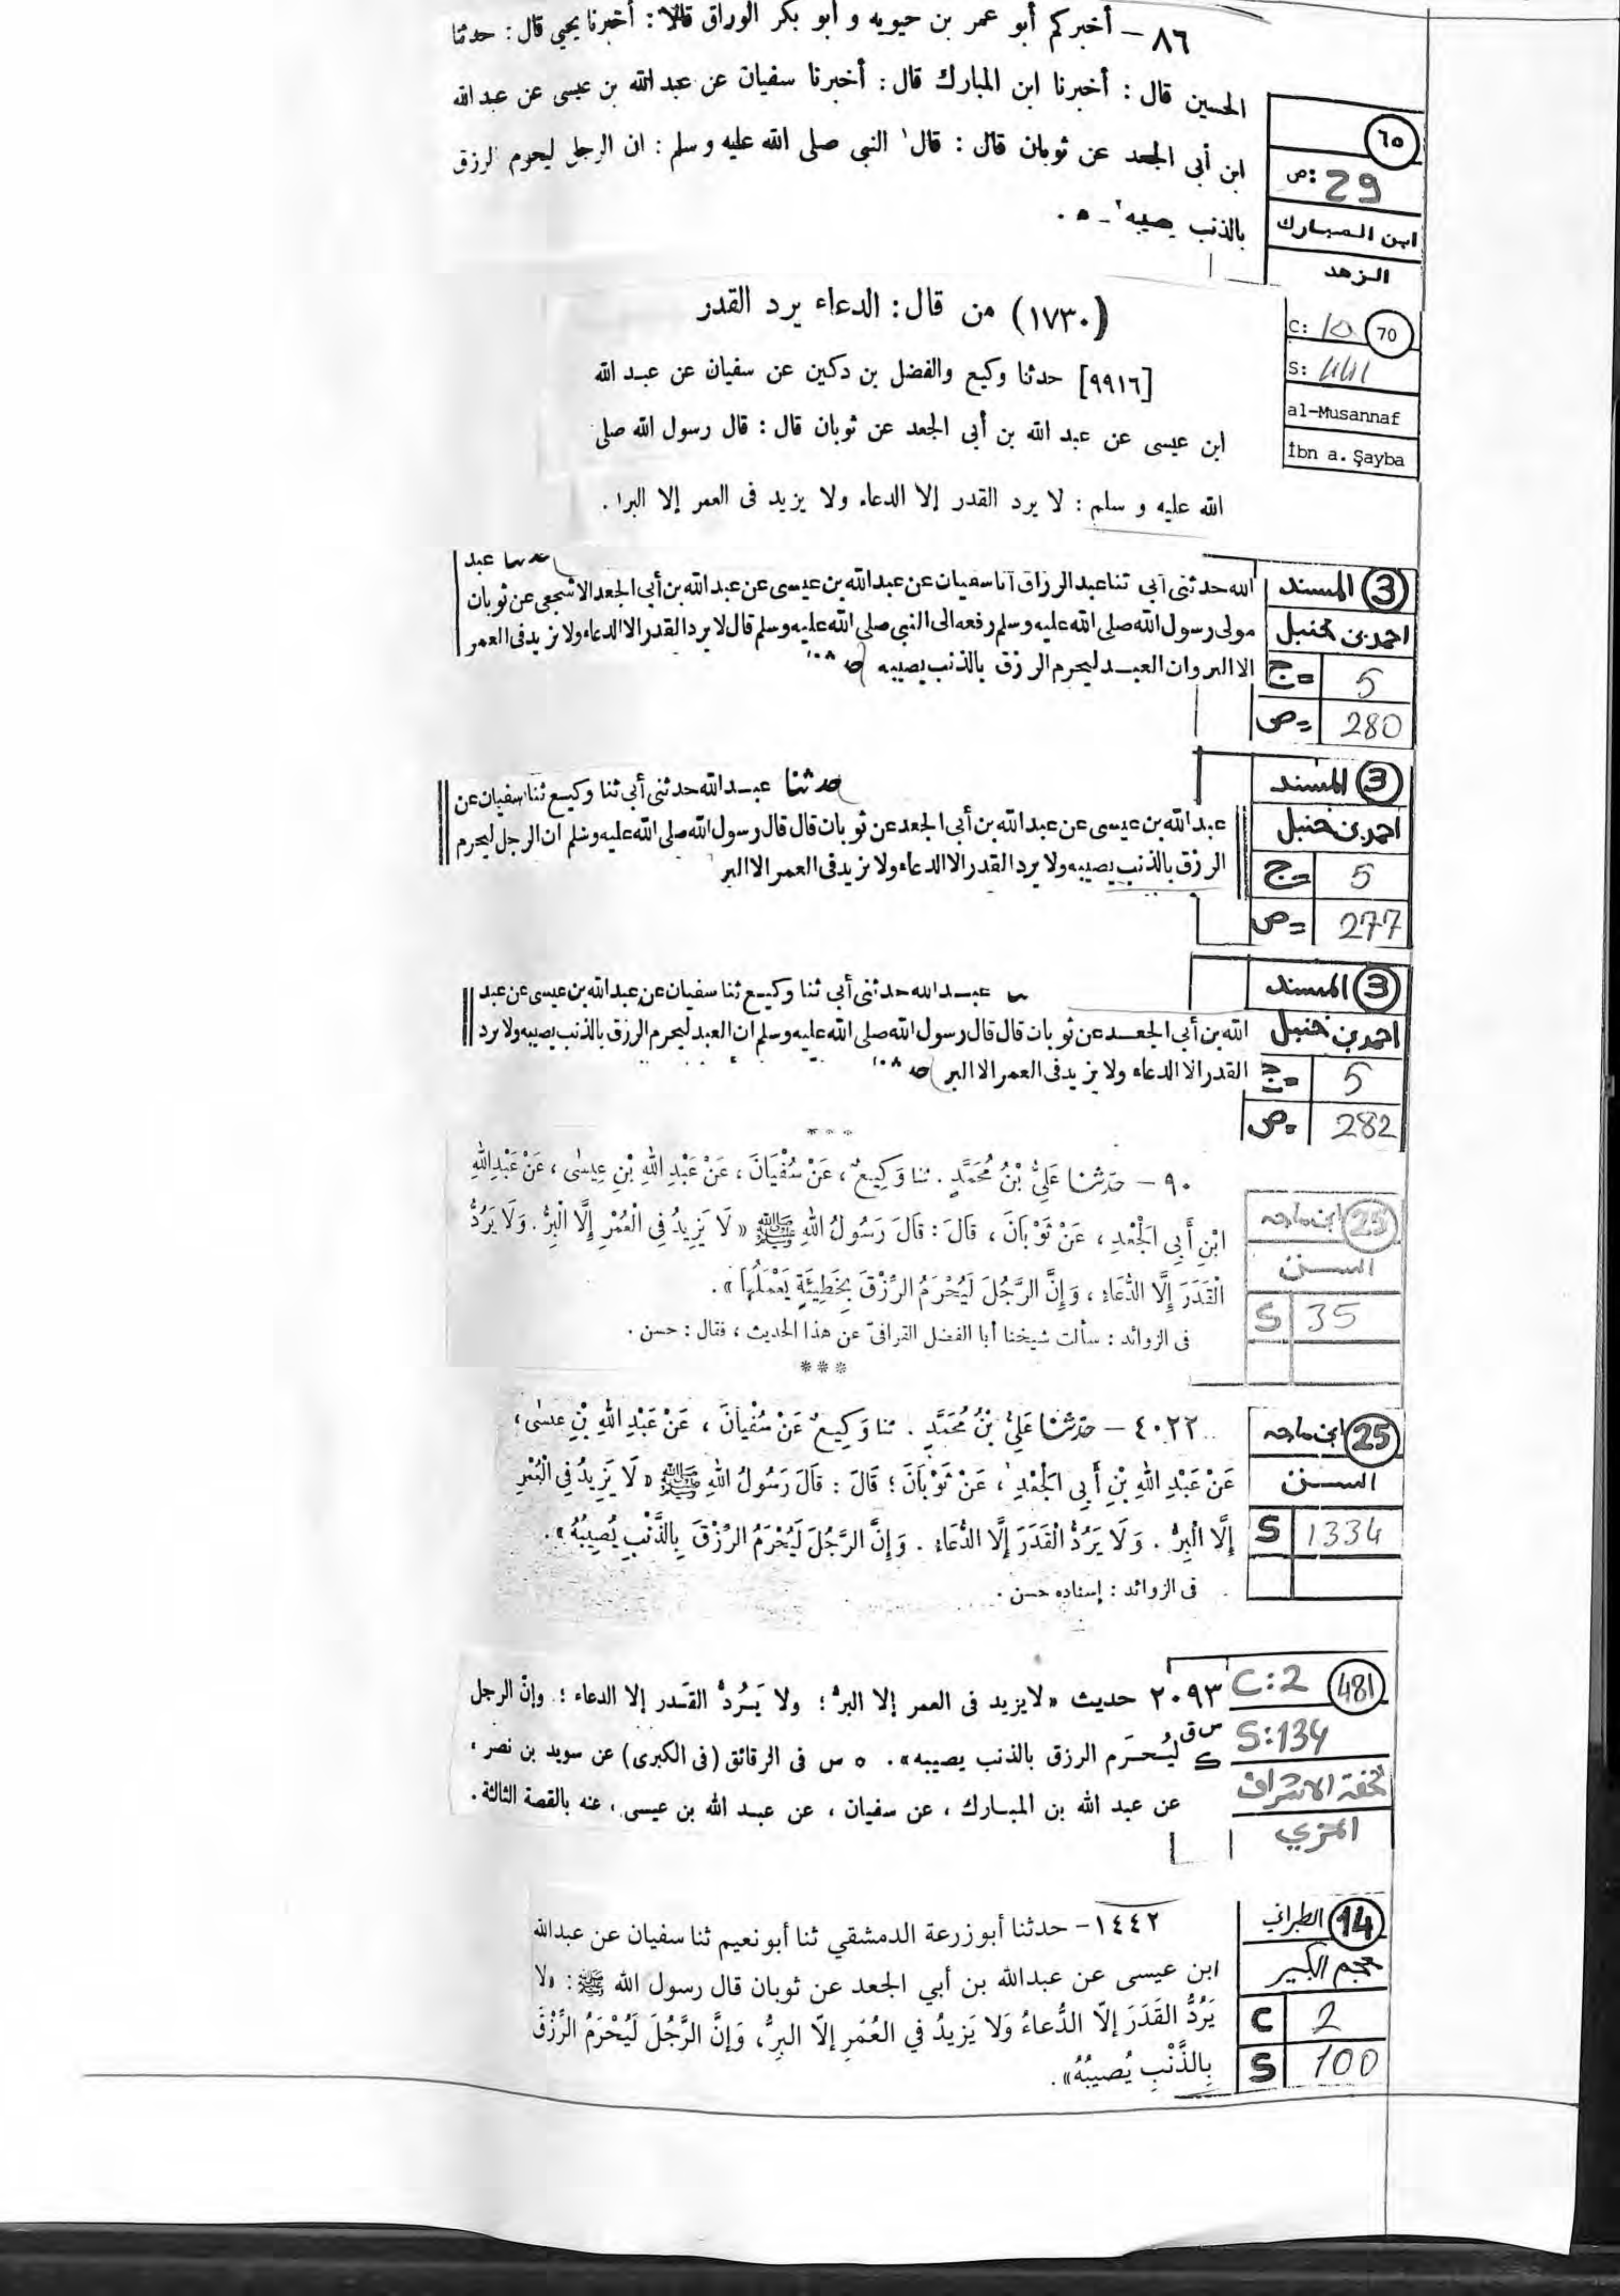 ٨٦ — أخبركم أبو عمر بن حيويه و أبو بكر الوراق قالا: أخبرنا يحيى قال: حدثنا
الحسين قال: أخبرنا ابن المبارك قال: أخبرنا سفيان عن عبد الله بن عيسى عن عبد الله
ابن أبى الجعد عن ثوبان قال: قال' النبى صلى الله عليه و سلم: ان الرجل ليحرم الرزق
بالذنب يصيبه' – ٥ .
٦٥
ص: 29
ابن المبارك
الزهد
(١٧٣٠) من قال: الدعاء يرد القدر
[٩٩١٦] حدثنا وكيع والفضل بن دكين عن سفيان عن عبد الله
ابن عيسى عن عبد الله بن أبى الجعد عن ثوبان قال: قال رسول الله صلى
الله عليه و سلم: لا يرد القدر إلا الدعاء ولا يزيد فى العمر إلا البر١ .
70
C: 10
S: 441
al-Musannaf
İbn a. Şayba
حدثنا عبد
الله حدثنى أبى ثنا عبد الرزاق أنا سفيان عن عبد الله بن عيسى عن عبد الله بن أبى الجعد الاشجعى عن ثوبان
مولى رسول الله صلى الله عليه وسلم رفعه الى النبى صلى الله عليه وسلم قال لا يرد القدر الا الدعاء ولا يزيد فى العمر
الا البر وان العبد ليحرم الرزق بالذنب يصيبه
3 المسند
احمد بن حنبل
ج= 5
ص= 280
حدثنا عبد الله حدثنى أبى ثنا وكيع ثنا سفيان عن
عبد الله بن عيسى عن عبد الله بن أبى الجعد عن ثوبان قال قال رسول الله صلى الله عليه وسلم ان الرجل ليحرم
الرزق بالذنب يصيبه ولا يرد القدر الا الدعاء ولا يزيد فى العمر الا البر
3 المسند
احمد بن حنبل
ج= 5
ص= 277
عبد الله حدثنى أبى ثنا وكيع ثنا سفيان عن عبد الله بن عيسى عن عبد
الله بن أبى الجعد عن ثوبان قال قال رسول الله صلى الله عليه وسلم ان العبد ليحرم الرزق بالذنب يصيبه ولا يرد
القدر الا الدعاء ولا يزيد فى العمر الا البر
3 المسند
احمد بن حنبل
ج= 5
ص= 282
* * *
٩٠ — حَدَّثَنَا عَلِيُّ بْنُ مُحَمَّدٍ . ثنا وَكِيعٌ ، عَنْ سُفْيَانَ ، عَنْ عَبْدِ اللهِ بْنِ عِيسٰى ، عَنْ عَبْدِ اللهِ
ابْنِ أَبِى الْجَعْدِ ، عَنْ ثَوْبَانَ ، قَالَ : قَالَ رَسُولُ اللهِ ﷺ « لَا يَزِيدُ فِى الْعُمْرِ إِلَّا الْبِرُّ . وَلَا يَرُدُّ
الْقَدَرَ إِلَّا الدُّعَاءُ ، وَإِنَّ الرَّجُلَ لَيُحْرَمُ الرِّزْقَ بِخَطِيئَةٍ يَعْمَلُهَا » .
فى الزوائد : سألت شيخنا أبا الفضل القرافىّ عن هذا الحديث ، فقال : حسن .
* * *
25 ابن ماجه
السنن
S 35
٤٠٢٢ — حَدَّثَنَا عَلِيُّ بْنُ مُحَمَّدٍ . ثنا وَكِيعٌ عَنْ سُفْيَانَ ، عَنْ عَبْدِ اللهِ بْنِ عِيسٰى ،
عَنْ عَبْدِ اللهِ بْنِ أَبِى الْجَعْدِ ، عَنْ ثَوْبَانَ ؛ قَالَ : قَالَ رَسُولُ اللهِ ﷺ « لَا يَزِيدُ فِى الْعُمْرِ
إِلَّا الْبِرُّ . وَلَا يَرُدُّ الْقَدَرَ إِلَّا الدُّعَاءُ . وَإِنَّ الرَّجُلَ لَيُحْرَمُ الرِّزْقَ بِالذَّنْبِ يُصِيبُهُ » .
فى الزوائد : إسناده حسن .
25 ابن ماجه
السنن
S 1334
٢٠٩٣ حديث « لا يزيد فى العمر إلا البرّ ؛ ولا يَرُدُّ القَدر إلا الدعاء ؛ وإنّ الرجل
س ق ليُحرَم الرزق بالذنب يصيبه » . ٥ س فى الرقائق (فى الكبرى) عن سويد بن نصر ،
ك
عن عبد الله بن المبارك ، عن سفيان ، عن عبد الله بن عيسى ، عنه بالقصة الثالثة .
481
C:2
S:134
تحفة الاشراف
المزي
١٤٤٢ – حدثنا أبو زرعة الدمشقي ثنا أبو نعيم ثنا سفيان عن عبدالله
ابن عيسى عن عبدالله بن أبي الجعد عن ثوبان قال رسول الله ﷺ : «لا
يَرُدُّ القَدَرَ إلّا الدُّعاءُ وَلا يَزيدُ في العُمَرِ إلّا البِرُّ، وَإنَّ الرَّجُلَ لَيُحْرَمُ الرِّزْقَ
بِالذَّنْبِ يُصيبُهُ» .
14 الطبراني
معجم الكبير
C 2
S 100